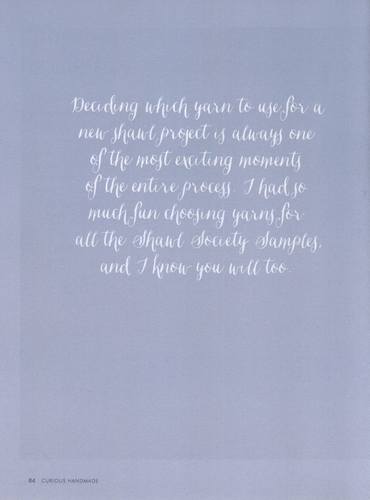 Deciding which yarn to use for a
new shawl project is always one
of the most exciting moments
of the entire process. I had so
much fun choosing yarns for
all the Shawl Society Samples,
and I know you will too.
84 CURIOUS HANDMADE